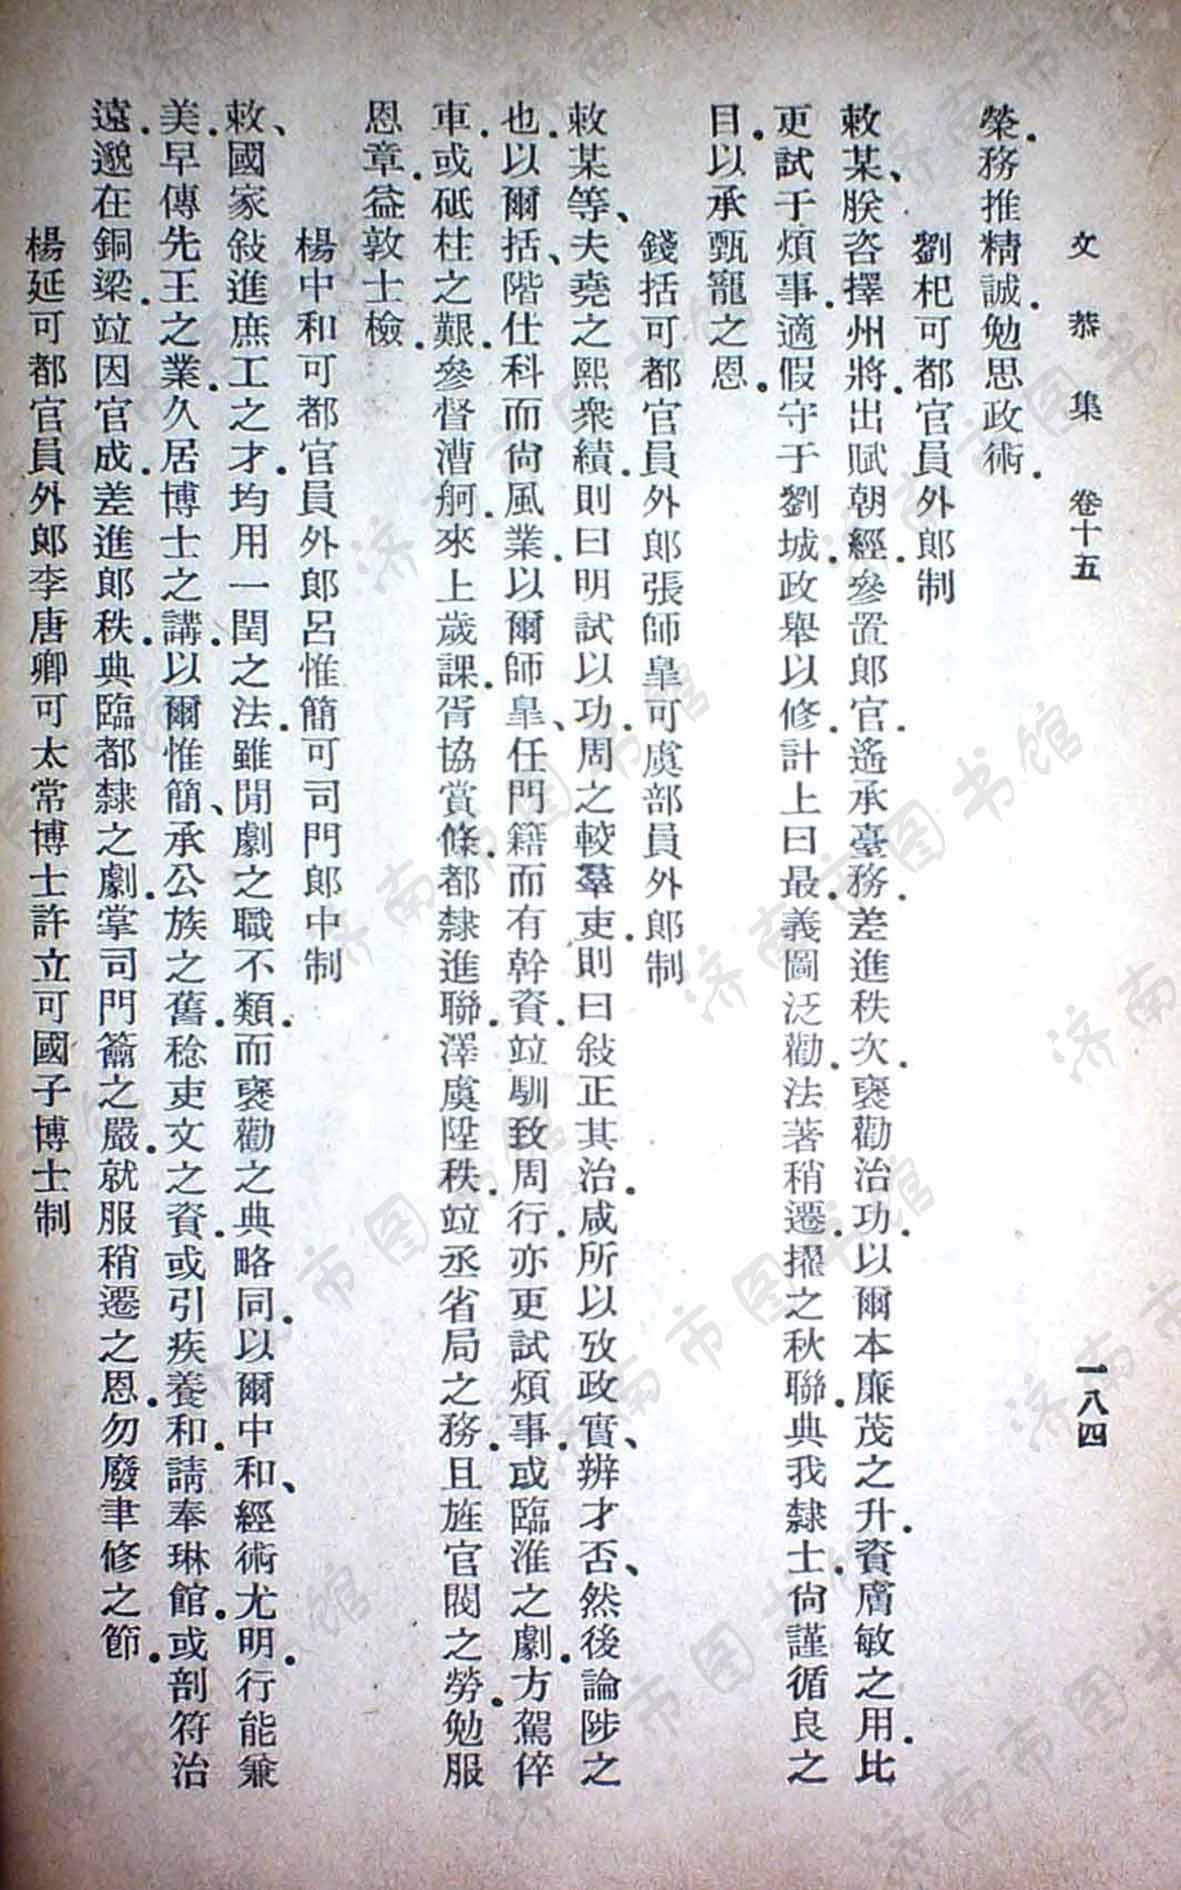 文恭集 卷十五 一八四
榮.務推精誠.勉思政術.
劉杞可都官員外郎制
敕某、朕咨擇州將.出賦朝經.參置郎官.遙承臺務.差進秩次.褒勸治功.以爾本廉茂之升.資膚敏之用.比
更試于煩事.適假守于劉城.政舉以修.計上曰最.義圖泛勸.法著稍遷.擢之秋聯.典我隸士.尙謹循良之
目.以承甄寵之恩.
錢括可都官員外郎張師皐可虞部員外郎制
敕某等、夫堯之熙衆績.則曰明試以功.周之較羣吏.則曰敍正其治.咸所以攷政實、辨才否、然後論陟之
也.以爾括、階仕科而尙風業.以爾師皐、任門籍而有幹資.竝馴致周行.亦更試煩事.或臨淮之劇.方駕倅
車.或砥柱之艱.參督漕舸.來上歲課.胥協賞條.都隸進聯.澤虞陞秩.竝丞省局之務.且旌官閥之勞.勉服
恩章.益敦士檢.
楊中和可都官員外郎呂惟簡可司門郎中制
敕、國家敍進庶工之才.均用一閏之法.雖閒劇之職不類.而褒勸之典略同.以爾中和、經術尤明.行能兼
美.早傳先王之業.久居博士之講.以爾惟簡、承公族之舊.稔吏文之資.或引疾養和.請奉琳館.或剖符治
遠.邈在銅梁.竝因官成.差進郎秩.典臨都隸之劇.掌司門籥之嚴.就服稍遷之恩.勿廢聿修之節.
楊延可都官員外郎李唐卿可太常博士許立可國子博士制